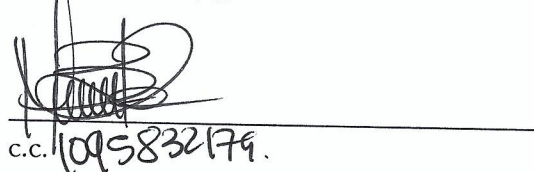 c.c. 1095832179.